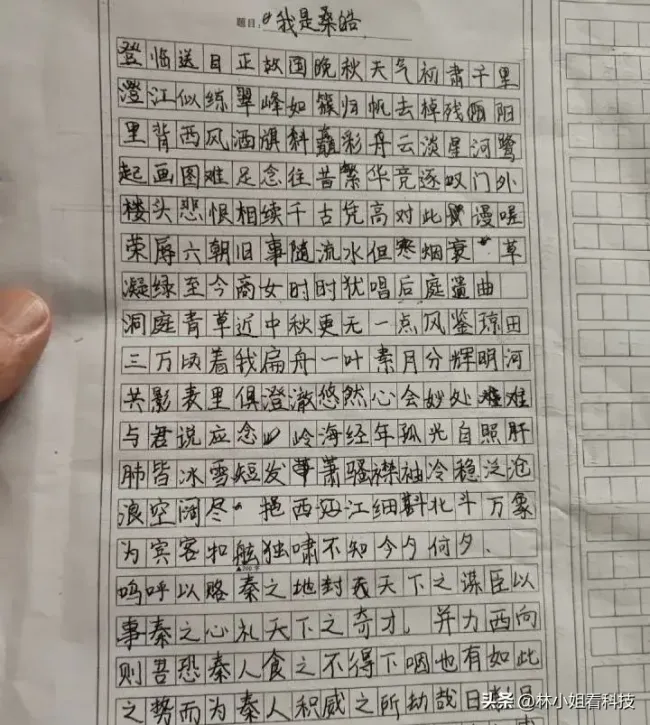 题目: 我是桑皓
登临送目正故国晚秋天气初肃千里
澄江似练翠峰如簇归帆去棹残阳
里背西风酒旗斜矗彩舟云淡星河鹭
起画图难足念往昔繁华竞逐叹门外
楼头悲恨相续千古凭高对此谩嗟
荣辱六朝旧事随流水但寒烟衰草
凝绿至今商女时时犹唱后庭遗曲
洞庭青草近中秋更无一点风鉴琼田
三万顷着我扁舟一叶素月分辉明河
共影表里俱澄澈悠然心会妙处难
与君说应念岭海经年孤光自照肝
肺皆冰雪短发萧骚襟袖冷稳泛沧
浪空阔尽挹西江细斟北斗万象
为宾客扣舷独啸不知今夕何夕、
▲200字
呜呼以赂秦之地封天下之谋臣以
事秦之心礼天下之奇才,并力西向
则吾恐秦人食之不得下咽也有如此
之势而为秦人积威之所劫哉日削月
头条 @林小姐看科技